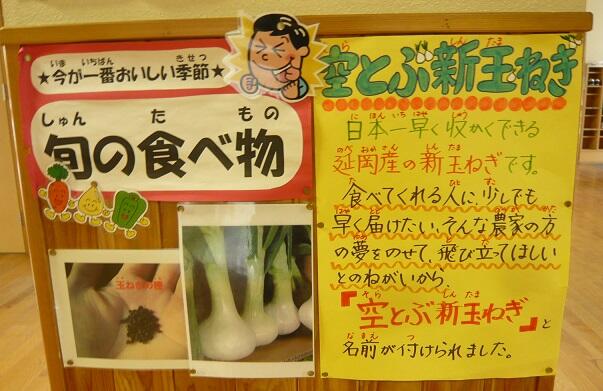 ★今が一番おいしい季節★
いま いちばん きせつ
旬の食べ物
しゅん た もの
玉ねぎの種
空とぶ新玉ねぎ
そら しん たま
日本一早く収かくできる
に ほん いち はや しゅう
延岡産の新玉ねぎです。
のべ おか さん しん たま
食べてくれる人に少しでも
た ひと すこ
早く届けたい、そんな農家の方
はや とど のう か かた
の夢をのせて、飛び立ってほしい
ゆめ と た
とのねがいから、
『空とぶ新玉ねぎ』と
そら しん たま
名前が付けられました。
な まえ つ